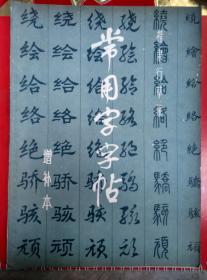 常用字字帖
增补本
绕 绕 绕 繞 繞
绘 绘 绘 繪 繪
给 给 给 給 給
络 络 络 絡 絡
绝 绝 绝 絕 絕
骄 骄 骄 驕 驕
骇 骇 骇 駭 駭
顽 顽 顽 頑 頑